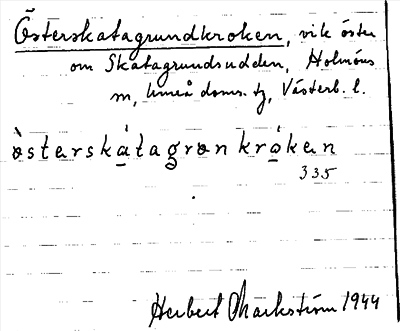 Österskatagrundkroken, vik öster
om Skatagrundsudden, Holmöns
sn, Umeå doms. tg, Västerb. l.
òstərskátagrɷnkrókən
335
Herbert Markström 1944